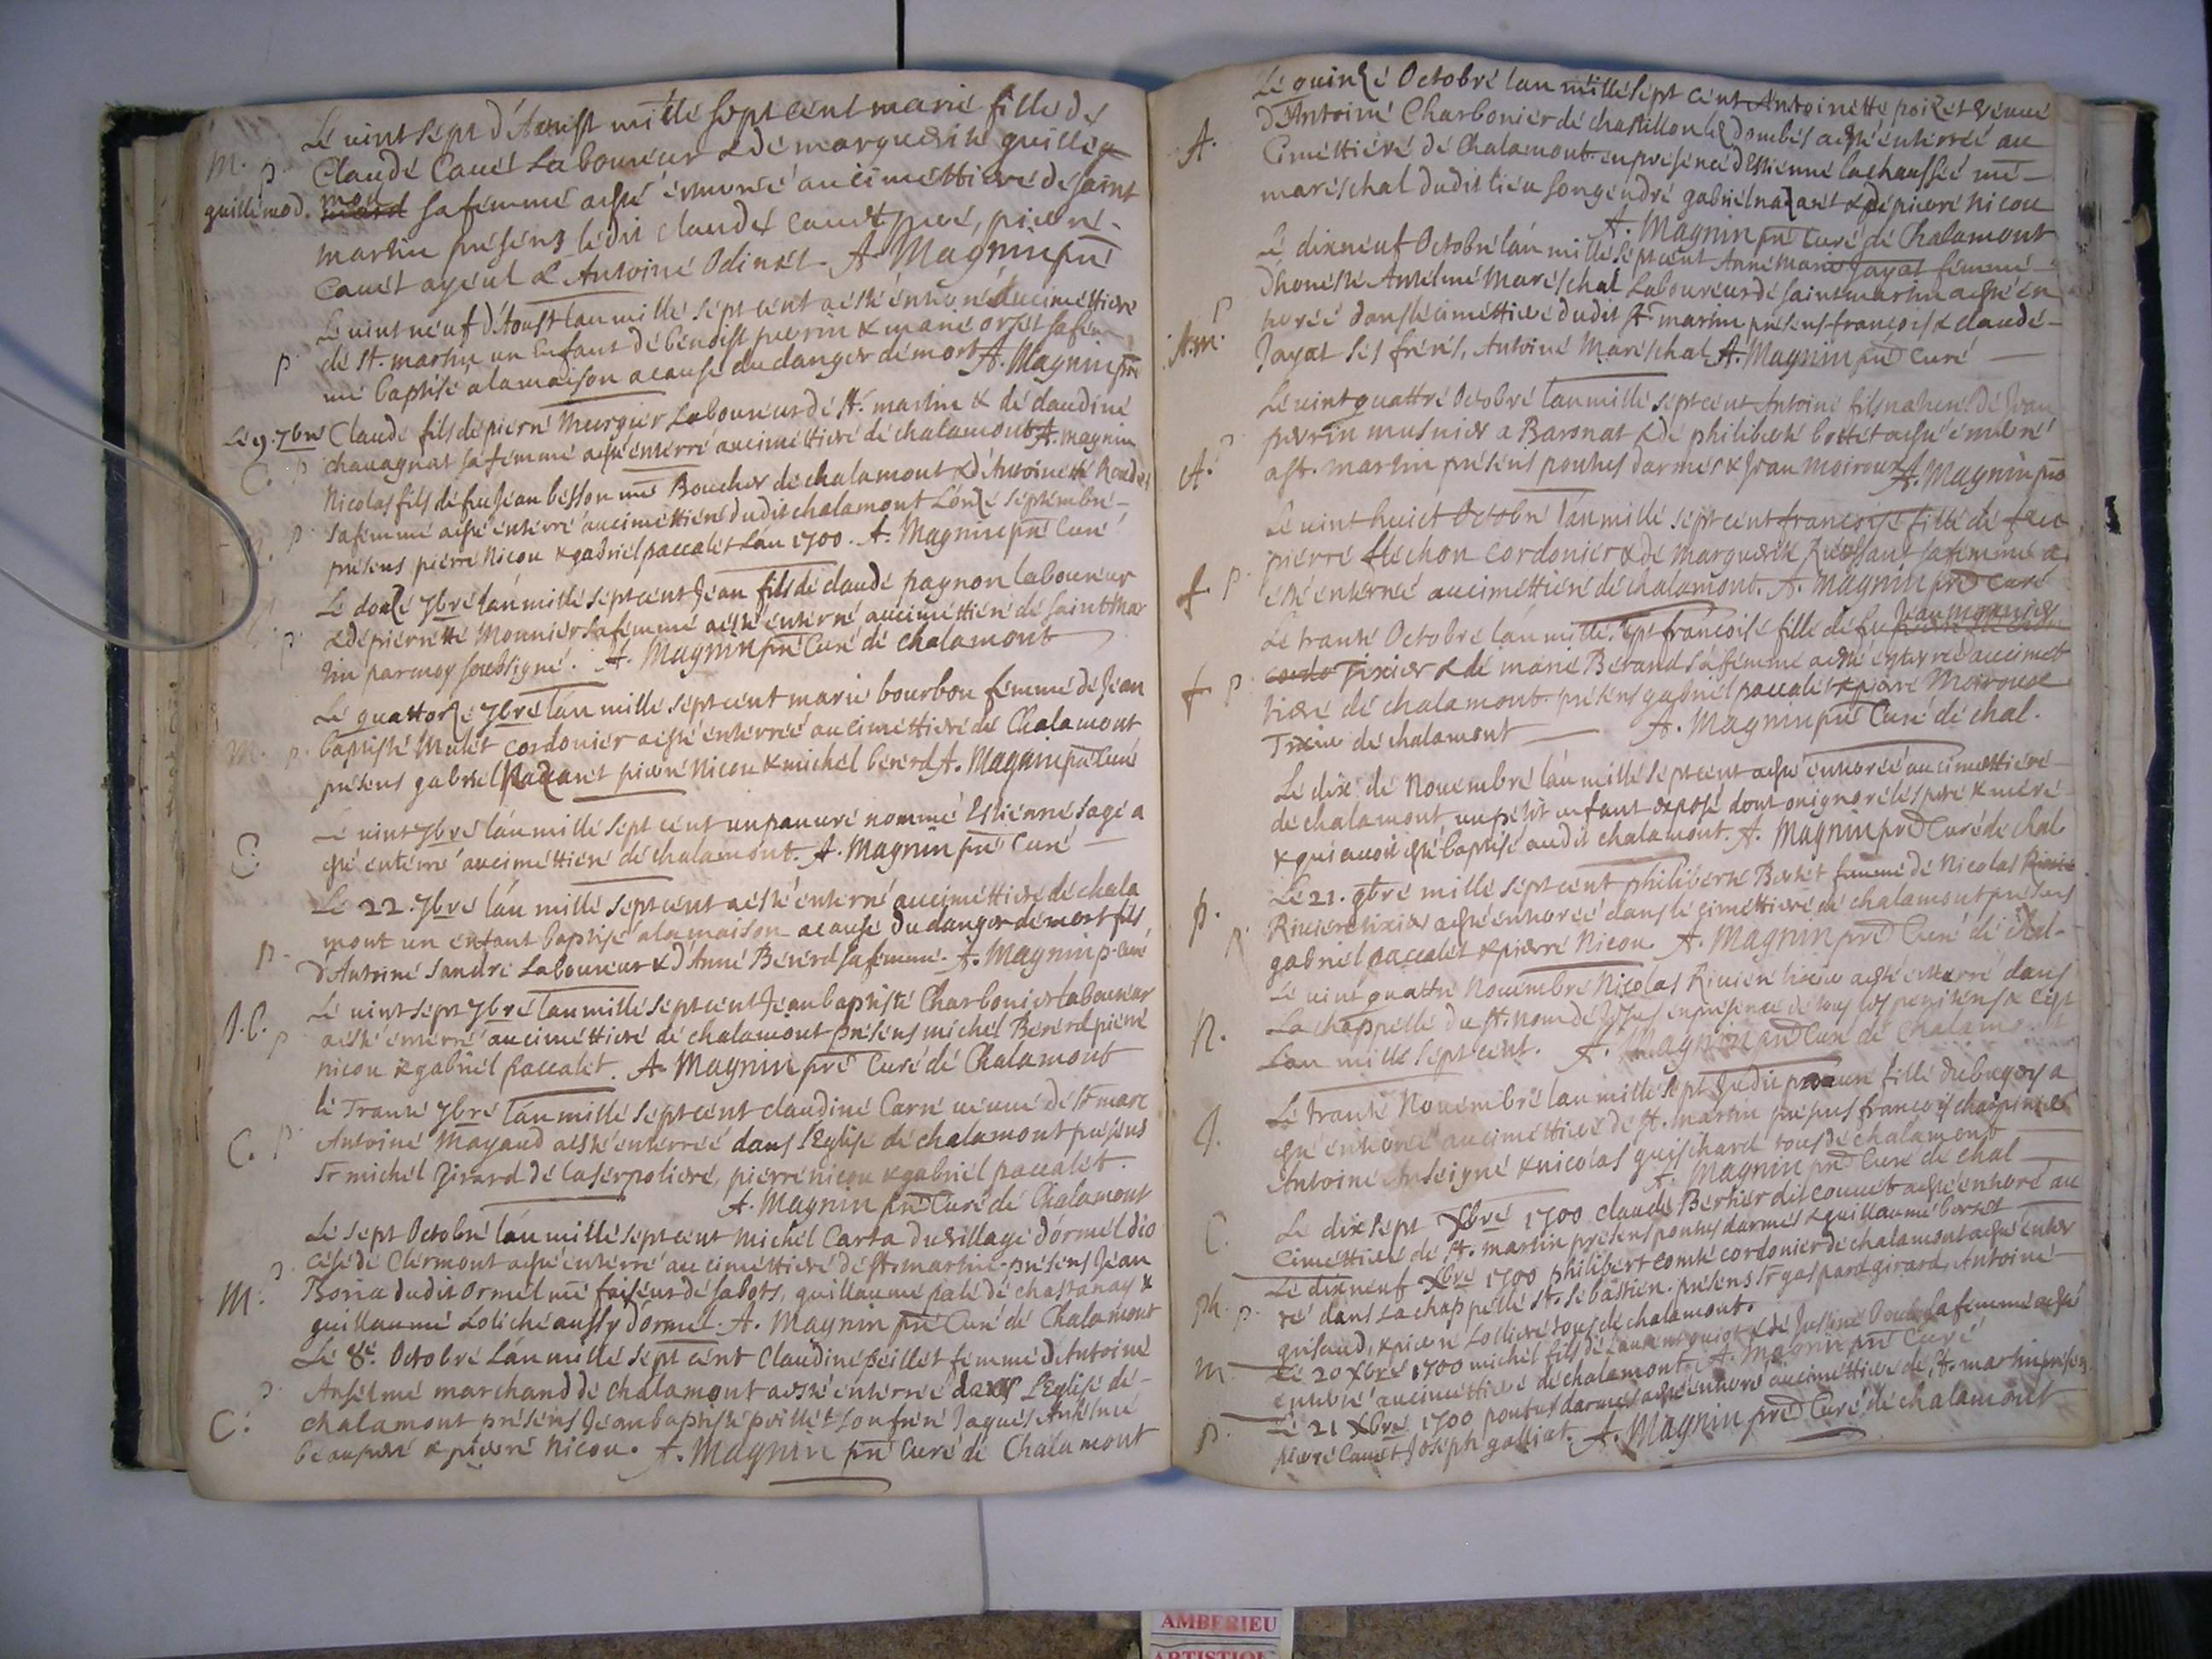 Le vint sept d'Aoust mille sept cent marie fille de
M. p. Claude Cauet Laboureur & de marguerite guille
guillemod. mod sa femme a esté enterrée au cimettiere de saint
martin présens ledit claude cauet pere, pierre
Cauet ayeul & Antoine Odinet. A. Magnin pre
Le vint neuf d'Aoust lan mille sept cent a esté enterré au cimettiere
p de St. martin un enfant de benoist perrin & marie orset sa fem
me baptisé a la maison a cause du danger de mort A. Magnin pre
Le 9. 7bre Claude fils de pierre Murgier Laboureur de St. martin & de claudine
C. p chauagnat sa femme a esté enterré au cimettiere de chalamont A. magnin
Nicolas fils de feu Jean besson me Boucher de chalamont & d'Antoinette
p sa femme a esté enterré au cimettiere dudit chalamont L'onze septembre
présens pierre Nicou & gabriel paccalet L'an 1700. A. Magnin pre Curé
Le douze 7bre l'an mille sept cent Jean fils de claude pagnon laboureur
p & de pierrette Monnier sa femme a esté enterré au cimettiere de saint Mar
tin par moy soubsigné. A. Magnin pre Curé de chalamont
Le quattorze 7bre l'an mille sept cent marie bourbon femme de Jean
M. p. baptiste Mulet cordonier a esté enterrée au cimettiere de Chalamont
présens gabriel Nazaret pierre Nicou & michel bererd A. Magnin pre Curé
Le vint 7bre l'an mille sept cent un pauure nommé Estienne Sage a
esté enterré au cimettiere de chalamont. A. Magnin pre Curé
Le 22. 7bre l'an mille sept cent a esté enterré au cimettiere de chala
mont un enfant baptisé a la maison a cause du danger de mort fils
p. d'Antoine Sandre Laboureur & d'Anne Bererd sa femme. A. Magnin p. Curé
Le vint sept 7bre l'an mille sept cent Jean baptiste Charbonier laboureur
J.B. p a esté enterré au cimettiere de chalamont présens michel Bererd pierre
nicou & gabriel paccalet. A. Magnin pre Curé de Chalamont
le Trante 7bre l'an mille sept cent claudine Carre ueuue de Sr marc
C. p Antoine Mayaud a esté enterrée dans l'Eglise de chalamont présens
Sr michel Girard de la serpoliere, pierre nicou & gabriel paccalet.
A. Magnin pre Curé de Chalamont
Le sept Octobre l'an mille sept cent Michel Carta du village d'ormel dio
p cese de Clermont a esté enterré au cimettiere de St. martin. présens Jean
M. Boria dudit Ormel me faiseur de sabots, guillaume pale de chastanay &
guillaume Loliche aussy d'ormel. A. Magnin pre Curé de Chalamont
Le 8e. Octobre L'an mille sept cent Claudine peillet femme d'Antoine
p Anselme marchand de chalamont a esté enterrée dans L'Eglise de
C. chalamont présens Jean baptiste peillet son frere Jaques Anselme
beaupere & pierre Nicou. A. Magnin pre Curé de Chalamont
Le quinze Octobre l'an mille sept cent Antoinette poizet veuue
d'Antoine Charbonier de chastillon les dombes a esté enterrée au
A. Cimettiere de Chalamont en présence d'Estienne lachaussée me
mareschal dudit lieu son gendre gabriel nazaret & de pierre Nicou
A. Magnin pre Curé de Chalamont
Le dixneuf Octobre l'an mille sept cent Anne marie Jayat femme
d'honeste Antelme Mareschal Laboureur de saint martin a esté en
p terrée dans le cimettiere dudit St. martin présens francois & claude
A.m. Jayat ses freres, Antoine Mareschal A. Magnin pre Curé
Le vint quattre Octobre l'an mille sept cent Antoine fils naturel de Jean
p perrin musnier a Baronat & de philiberte bottet a esté enterré
A. a St. martin présens pontus darmes & Jean moiroux A. Magnin pre
Le vint huict Octobre l'an mille sept cent francoise fille de feu
pierre flechon cordonier & de Marguerite sa femme a
f p. esté enterrée au cimettiere de chalamont. A. Magnin pre Curé
Jean monnier
Le trante Octobre l'an mille sept francoise fille de feu
f p Tixier & de marie Beraud sa femme a esté enterrée au cimet
tiere de chalamont. présens gabriel paccalet & pierre Moiroux
Tixier de chalamont A. Magnin pre Curé de chal.
Le dix de Nouembre l'an mille sept cent a esté enterrée au cimettiere
de chalamont un petit enfant exposé dont on ignore les pere & mere
& qui auoit esté baptisé audit chalamont. A. Magnin pre Curé de chal.
Le 21. 9bre mille sept cent philiberte Bertet femme de Nicolas
p. Riuiere tixier a esté enterrée dans le cimettiere de chalamont présens
p gabriel paccalet & pierre Nicou A. Magnin pre Curé de chal.
Le vint quattre Nouembre Nicolas Riuiere tixier a esté enterré dans
N. La chappelle du St. nom de Jesus en présence de tous les penitens & c'est
L'an mille sept cent. A. Magnin pre Curé de Chalamont
Le trante Nouembre l'an mille sept Judit fille du bugey a
J. esté enterrée au cimettiere de St. martin présens francois charpinet
Antoine Anseigne & nicolas guischard tous de chalamont
A. Magnin pre Curé de chal
C. Le dix sept Xbre 1700 claude Berhier dit couuet a esté enterré au
Cimettiere de St. martin présens pontus darmes & guillaume berset
Le dixneuf Xbre 1700 philibert comte cordonier de chalamont a esté enter
ph. p. ré dans la chappelle St. Sebastien. présens Sr gaspard girard, Antoine
guisaud, & pierre Losliere tous de chalamont.
m Le 20 Xbre 1700 michel fils de Laurent guiot & de Justine sa femme a esté
enterré au cimettiere de chalamont. A. Magnin pre Curé
Le 21 Xbre 1700 pontus darmes a esté enterré au cimettiere de St. martin présens
p. pierre Cauet Joseph galliat. A. Magnin pre Curé de chalamont
AMBERIEU